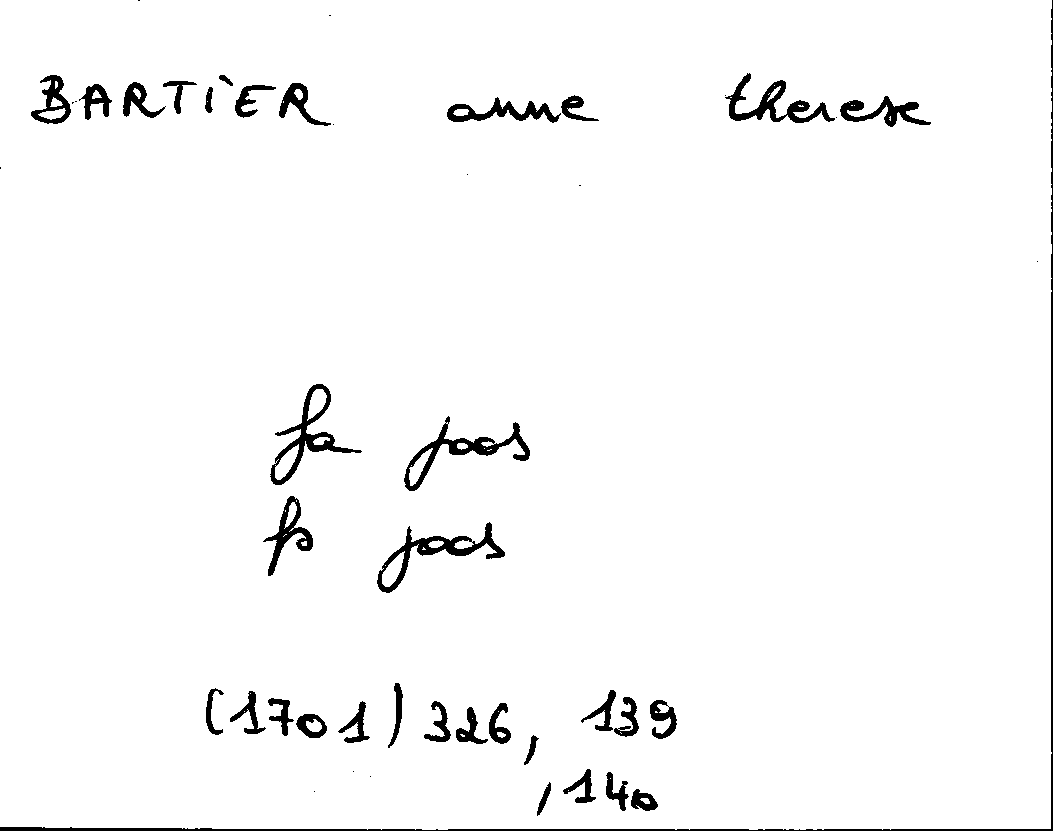 BARTIER anne therese
fa joos
fs joos
(1701) 326, 139
, 140